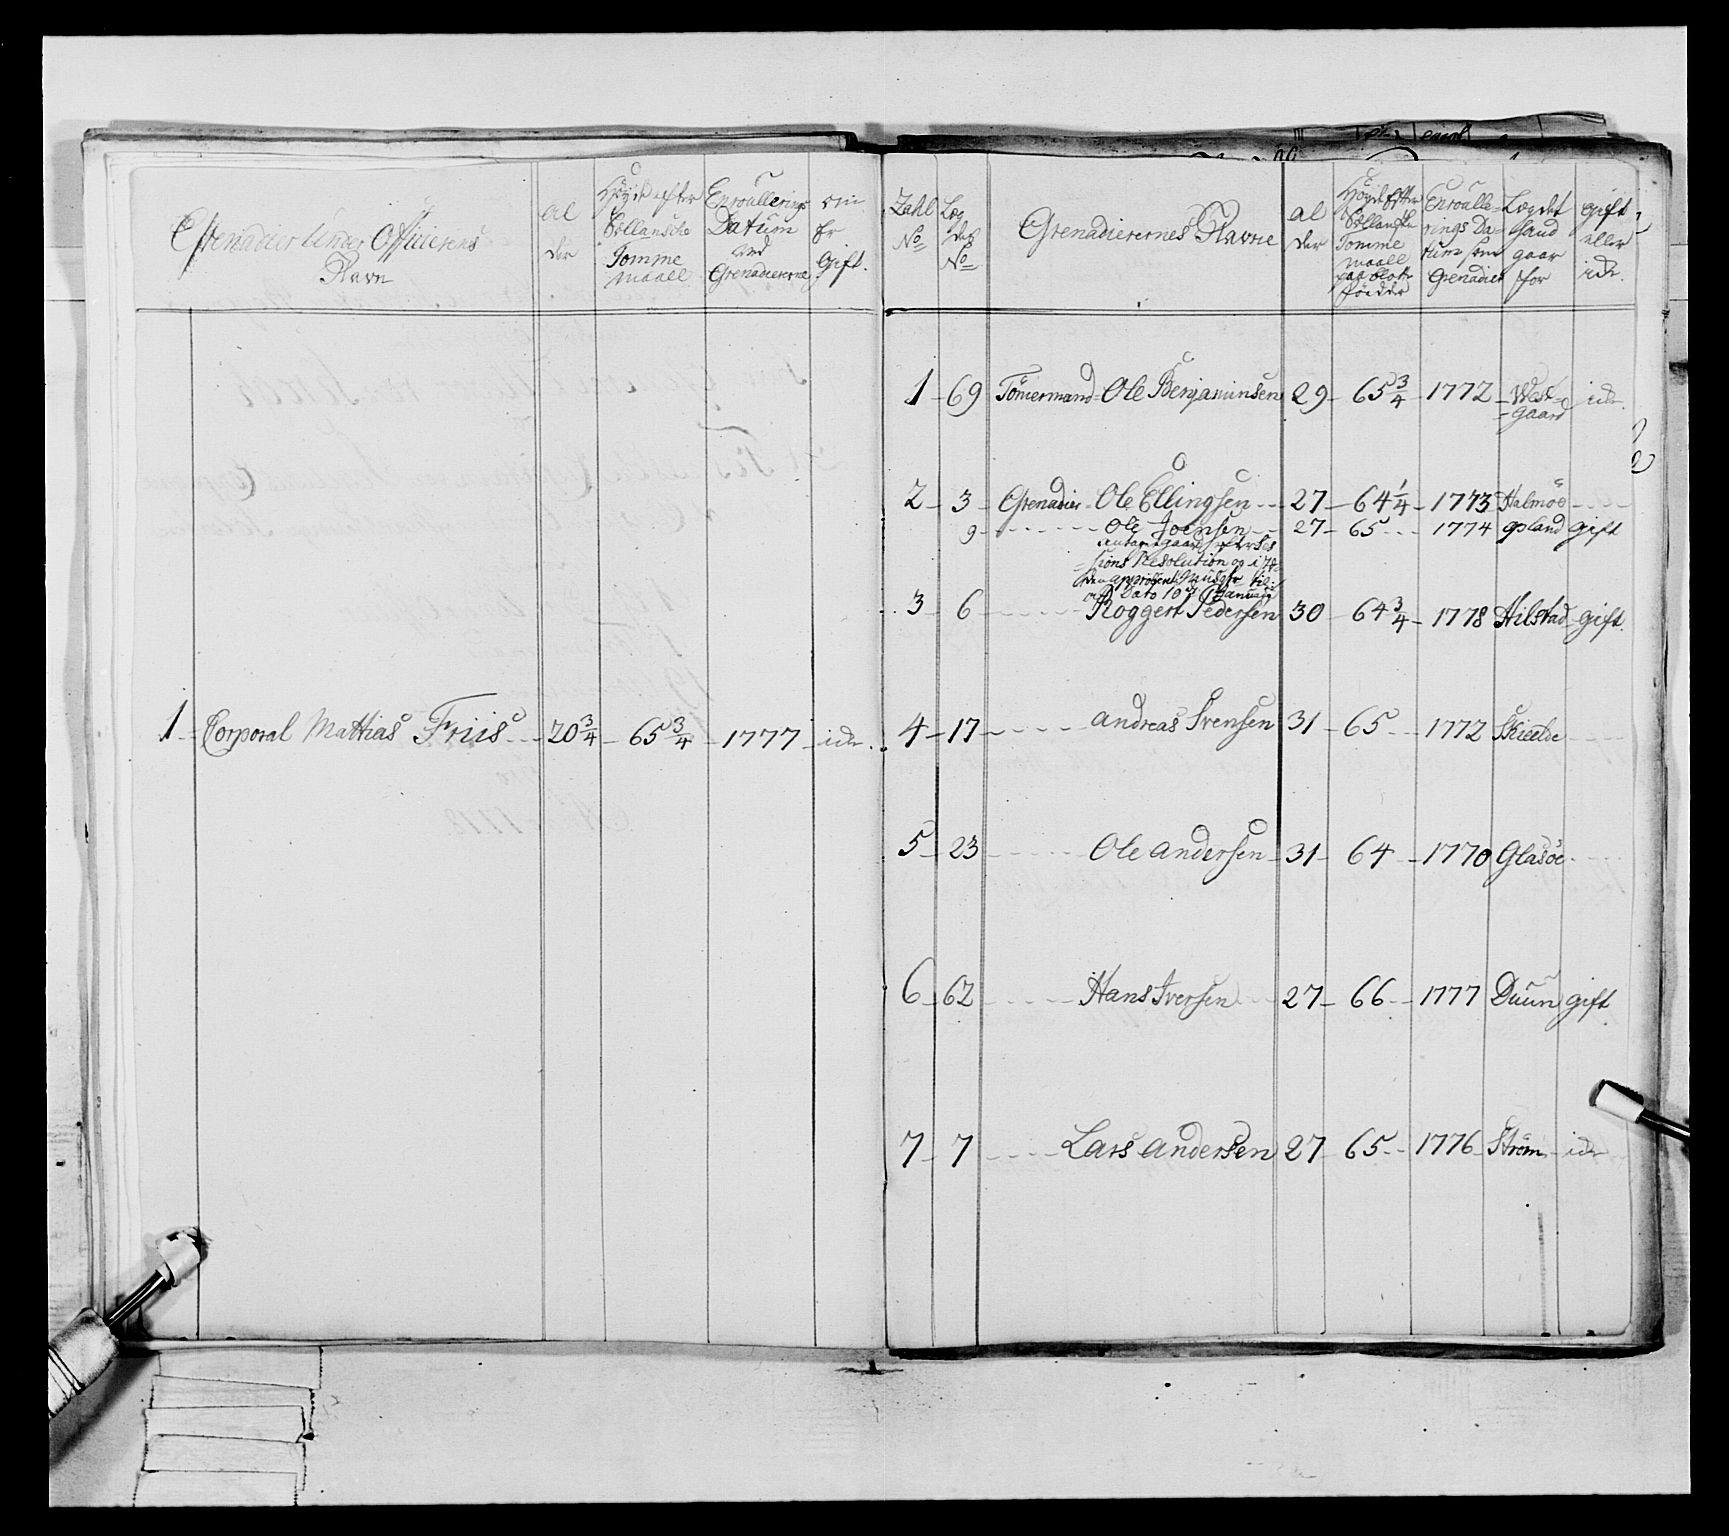 Grenadier Under Officierens
Navn
al
der
Høyde efter
Sollansche
Tomme
maall
Enroullerings
Datum
ved
Grenadiererne
om
Er
Gift.
1 Corporal Mathias Friis 20 3/4 65 3/4 1777 ide.
Zahl
No
Læg
des
No
Grenadierernes Navne
al
der
Høyde Efter
Sollanske
Tomme
maall
paa blotte
födder
Enroulle-
rings Da-
tum som
Grenadier
Lægdet
hand
gaar
for
gift
eller
ide.
1 69 Tömermand Ole Benjaminsen 29 65 3/4 1772 West-
gaard ide.
2 3 Grenadier Ole Ellingsen 27 64 1/4 1773 Halmöe
9 Ole Joensen 27 65 1774 opland gift
Resolution og
Dato 10de Januarij
3 6 Roggert Pedersen 30 64 3/4 1778 Hilstad gift.
4 17 Andreas Svensen 31 65 1772 Skielde
5 23 Ole Andersen 31 64 1770 Glasöe
6 62 Hans Iversen 27 66 1777 Duun gift
7 7 Lars Andersen 27 65 1776 Ström ide